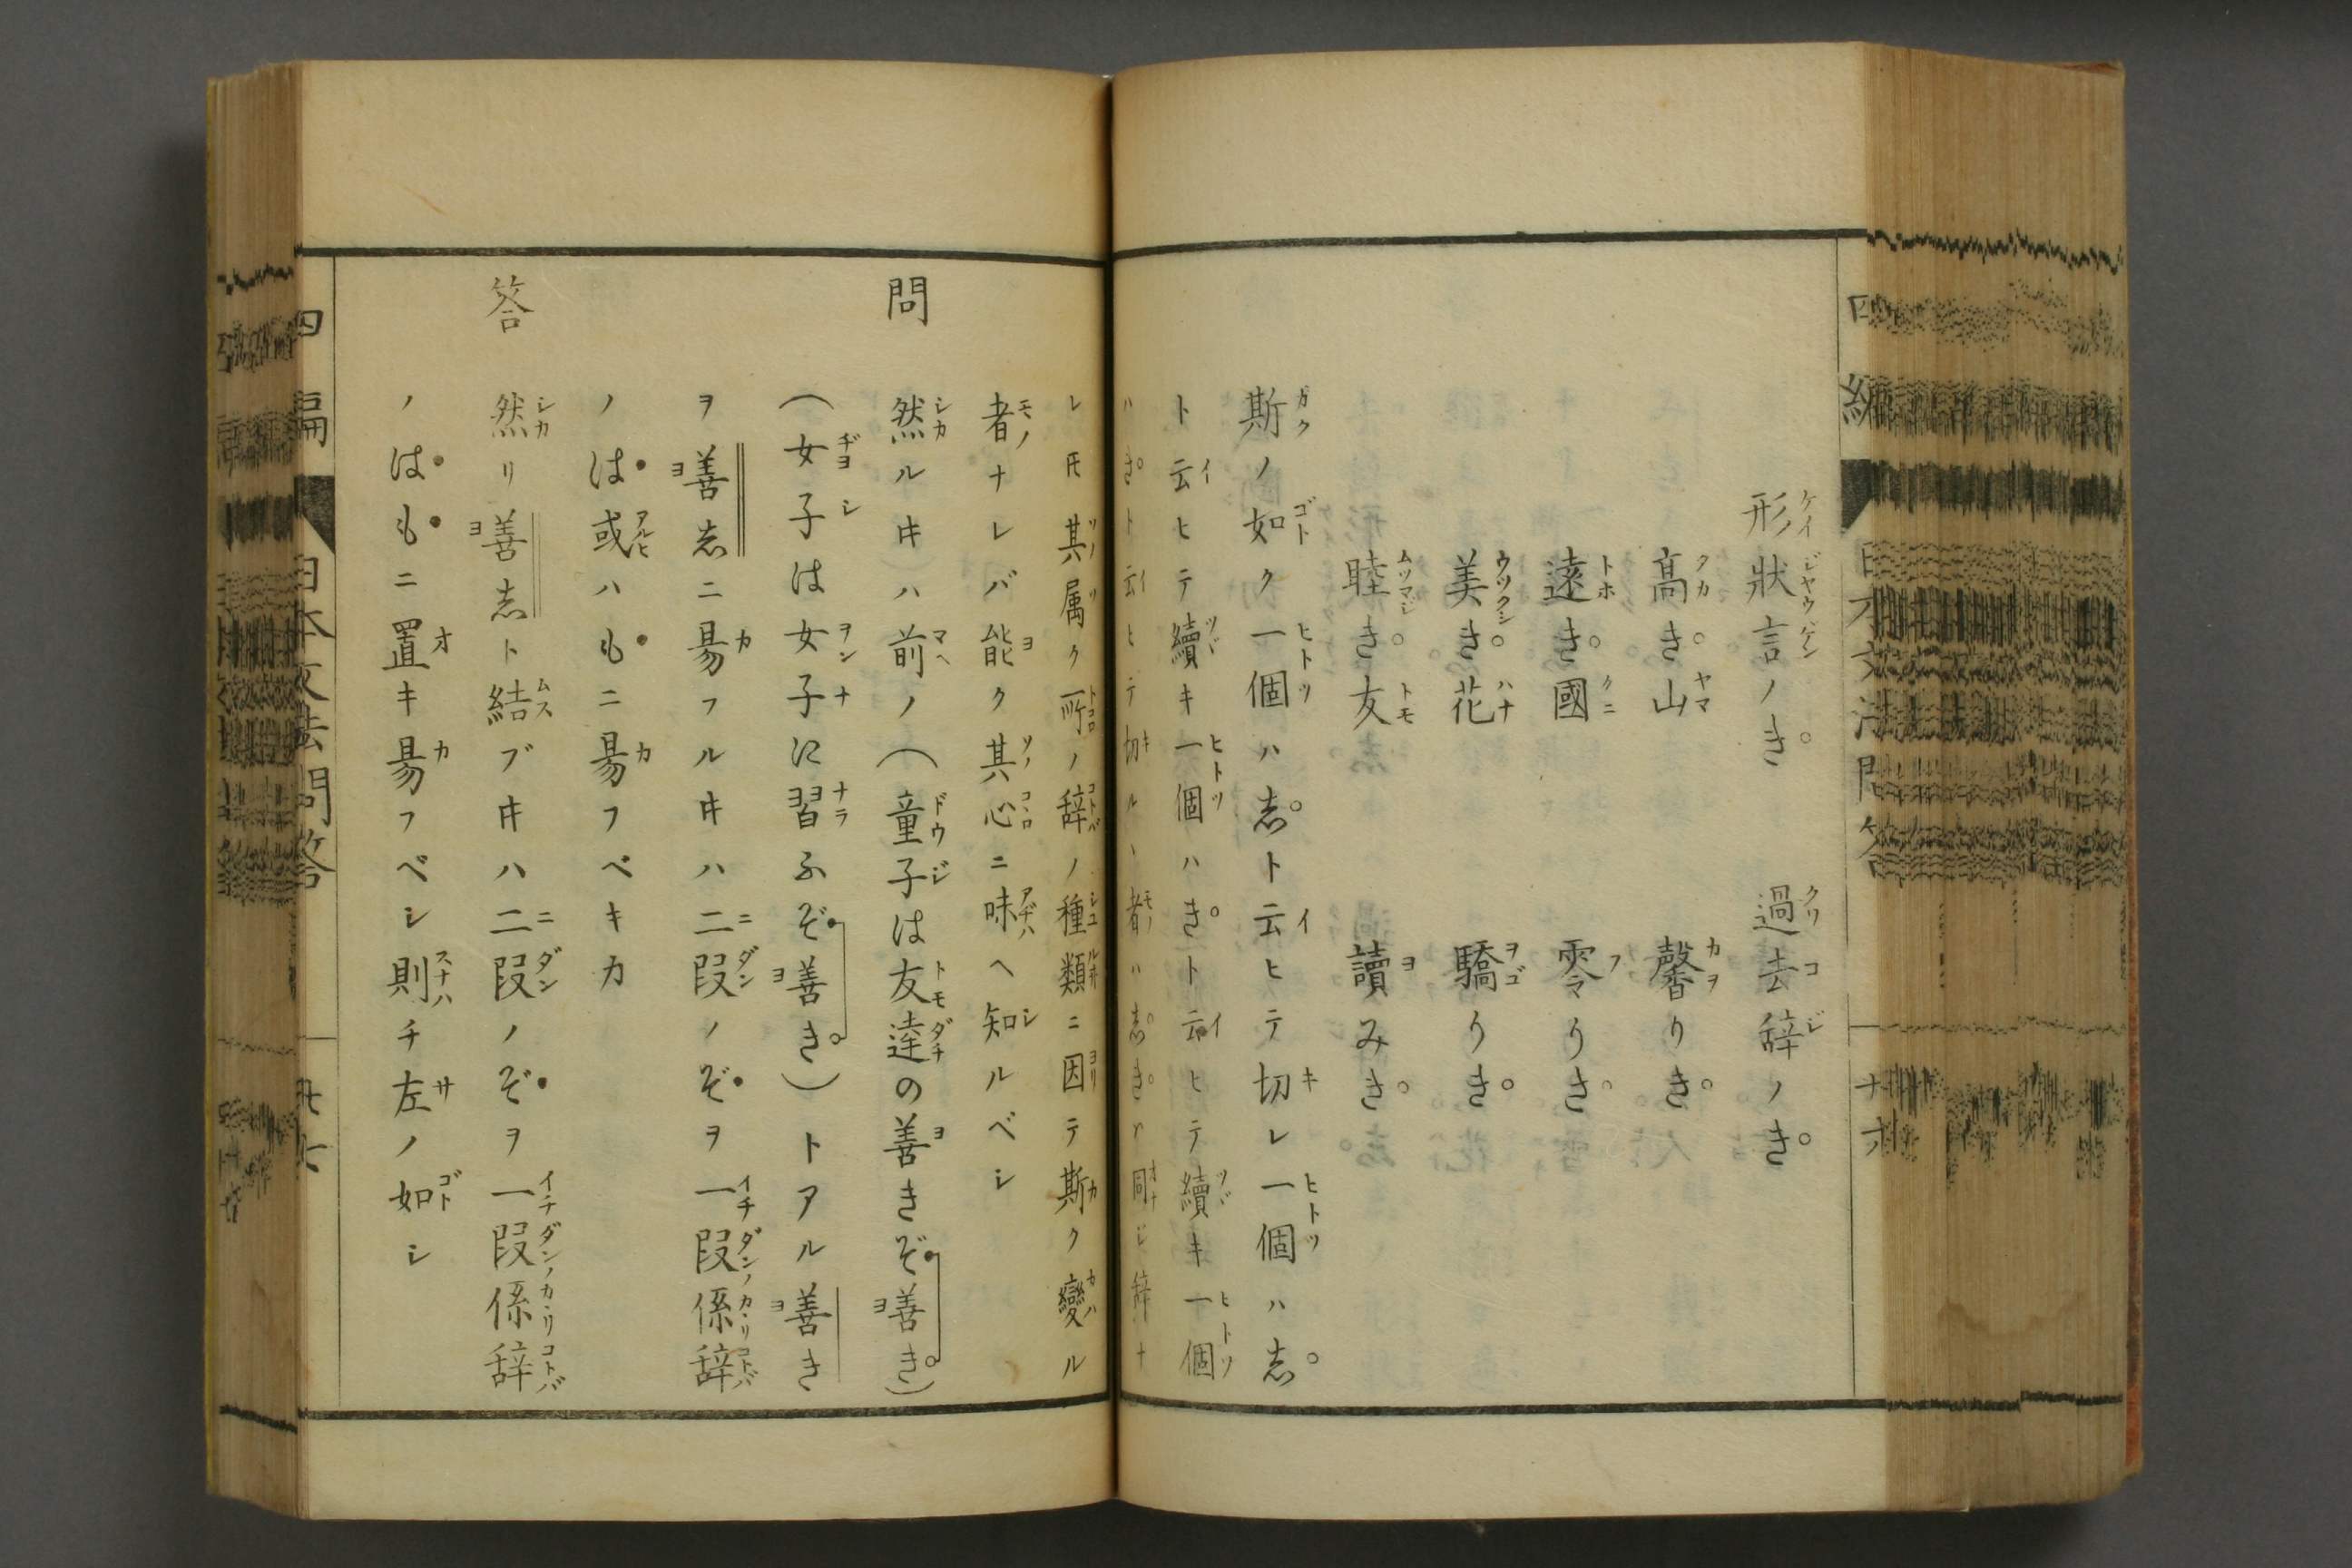 形狀言ノき 過去辞ノき
高き山 馨りき
遠き國 零りき
美き花 驕りき
睦き友 讀みき
斯ノ如ク一個ハ志ト云ヒテ切レ一個ハ志
ト云ヒテ續キ一個ハきト云ヒテ續キ一個
ハきト云ヒテ切ルヽ者ハ志きト同ジ辞ナ
レ𪜈其属ク所ノ辞ノ種類ニ因テ斯ク變ル
者ナレバ能ク其心ニ味ヘ知ルベシ
問 然ル𪜀ハ前ノ(童子は友達の善きぞ善き)
(女子は女子に習ふぞ善き)トアル善き
ヲ善志ニ昜フル𪜀ハ二段ノぞヲ一段係辞
ノは或ハもニ昜フベキカ
答 然リ善志ト結ブ𪜀ハ二段ノぞヲ一段係辞
ノはもニ置キ昜フベシ則チ左ノ如シ
四編 日本文法問答